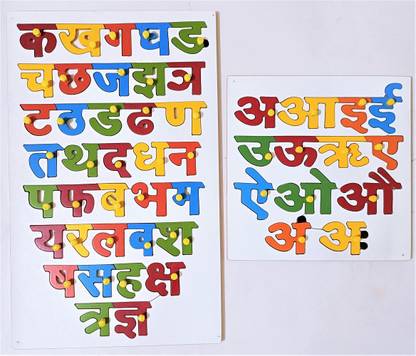 क ख ग घ ङ
च छ ज झ ञ
ट ठ ड ढ ण
त थ द ध न
प फ ब भ म
य र ल व श
ष स ह क्ष
त्र ज्ञ
अ आ इ ई
उ ऊ ऋ ए
ऐ ओ औ
अं अः